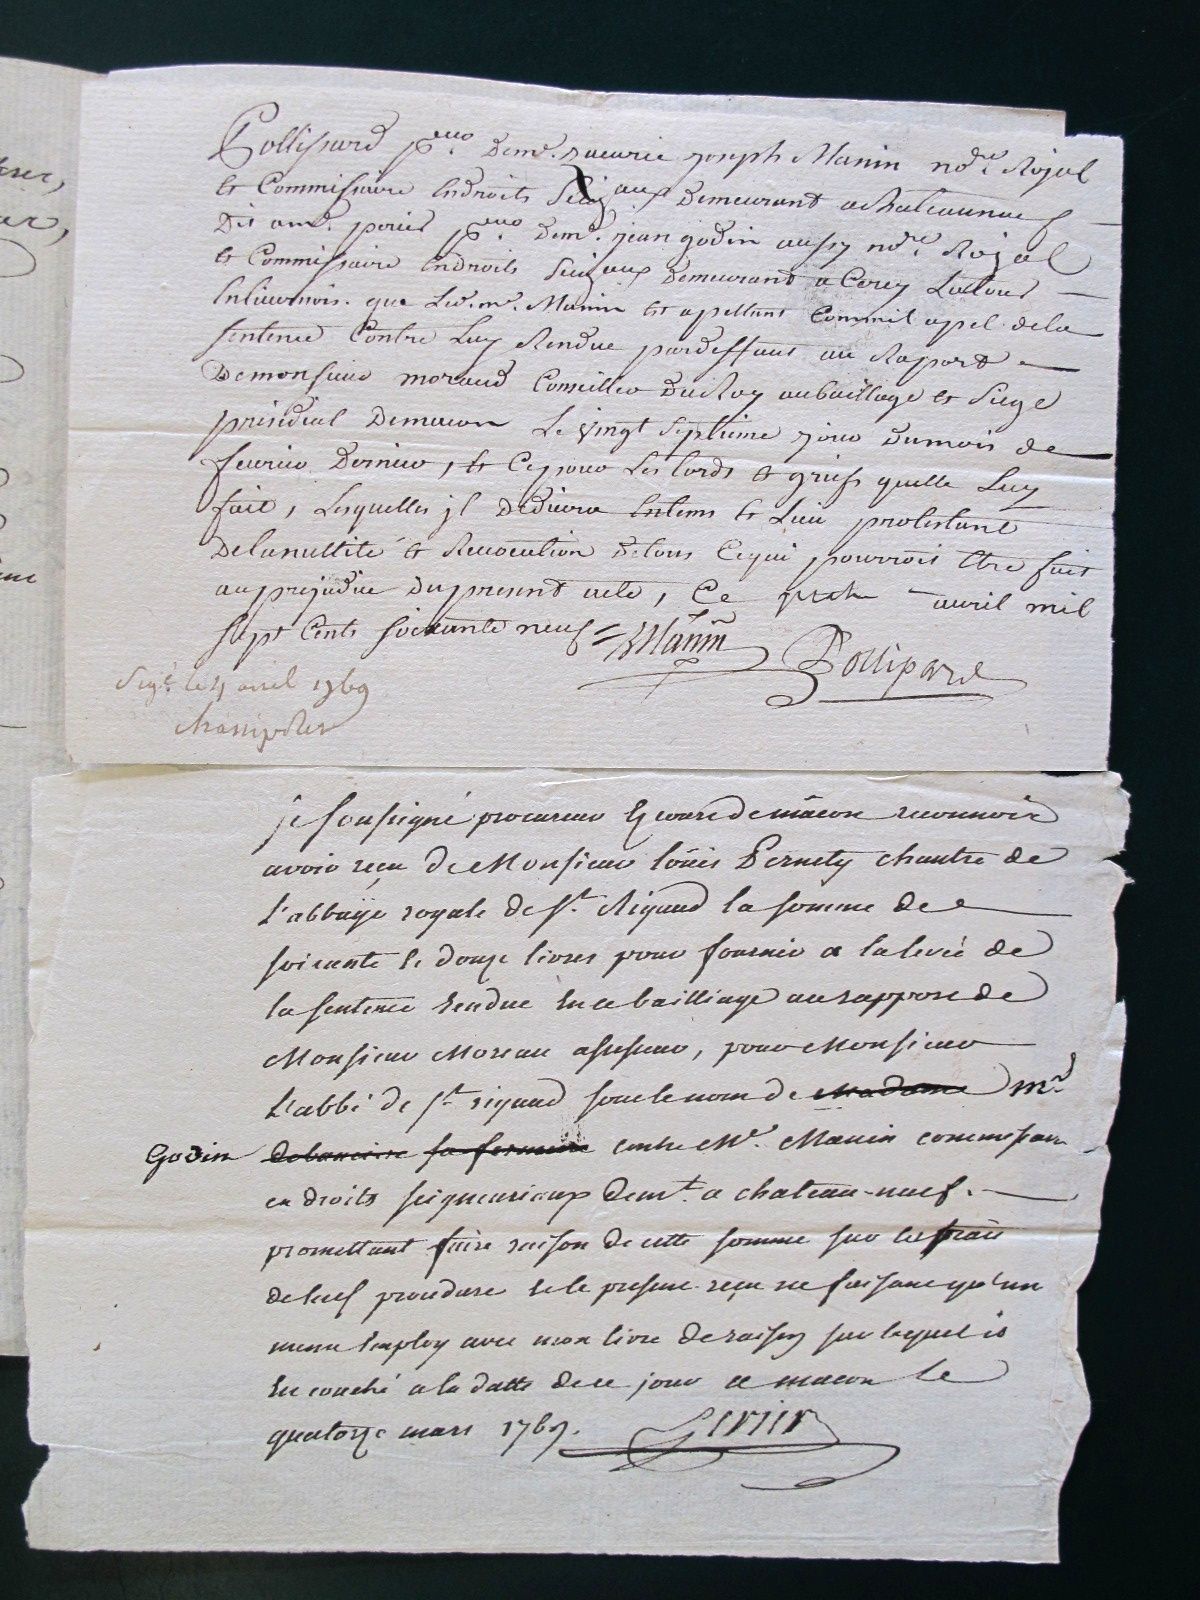 Pollissard p.eur De me. Joseph Manin nore. Royal
et Commissaire En droits Seigaux Demeurant a chateauneuf
Dit a me. p.eur De me. jean godin aussy nore. Royal
et Commissaire En droits Seigaux Demeurant a
que Led. me. Manin est apellant Comme il apel de la
sentence Contre Luy Rendue par deffaut au Raport
De monsieur moraud Conseiller Du Roy au baillage et Siege
présidial De macon Le vingt septieme jour Du mois de
feurier Dernier, et Ce pour Les tords et griefs quelle Luy
fait, Lesquelles jl Deduira En tems et Lieu protestant
De la nullité et Revocation De tous Ce qui pourroit Etre fait
au prejudice Du present acte, Ce quatre avril mil
sept Cents soixante neuf = Manin Pollissard
Sigé. le 4 avril 1769
je soussigné procureur Es cours de mâcon reconnois
avoir reçu de Monsieur loüis Pernety chantre de
L'abbaÿe royale de St. Rigaud la somme de
soixante et douze livres pour fournir a la levée de
la sentence rendue en ce bailliage au rapport de
Monsieur Moreau assesseur, pour Monsieur
L'abbé de St. rigaud sous le nom de Madame Me
Godin sa fermiere contre Me. Manin commissaire
en droits seigneuriaux demt. a chateau-neuf.
promettant faire raison de cette somme sur les frais
de lad procedure et le present reçu ne faisant qu'un
meme Employ avec mon livre de raison sur lequel il
Est couché a la datte de ce jour a macon le
quatorze mars 1769.